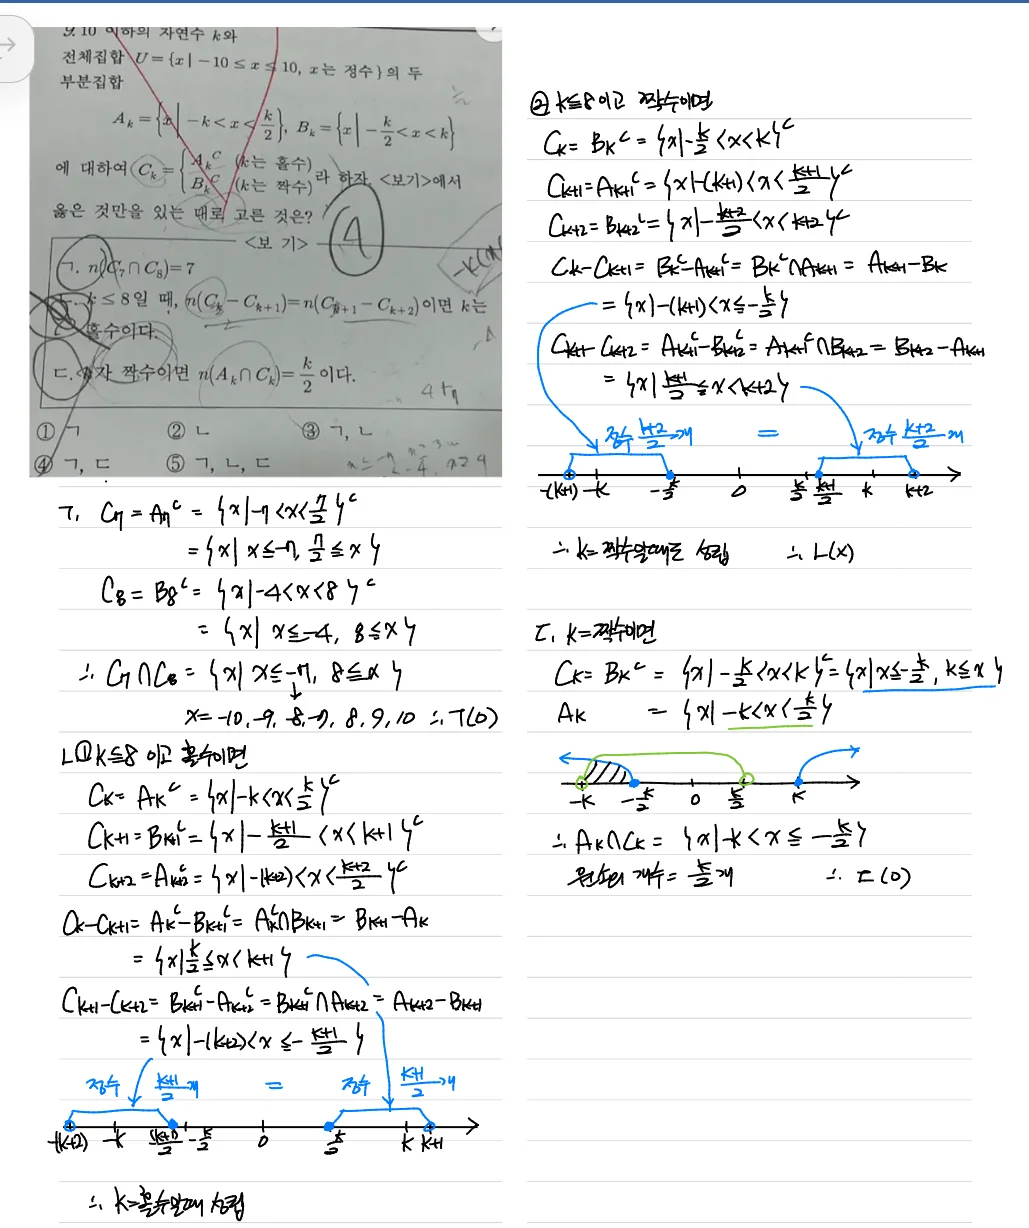 9. 10 이하의 자연수 k와
전체집합 U={x | -10≤x≤10, x는 정수}의 두
부분집합
A_k={x | -k<x<k/2}, B_k={x | -k/2<x<k}
에 대하여 C_k={A_k^C (k는 홀수) B_k^C (k는 짝수) 라 하자. <보기>에서
옳은 것만을 있는 대로 고른 것은?
<보 기>
ㄱ. n(C_7∩C_8)=7
ㄴ. k≤8일 때, n(C_k-C_{k+1})=n(C_{k+1}-C_{k+2})이면 k는
홀수이다.
ㄷ. k가 짝수이면 n(A_k∩C_k)=k/2 이다.
① ㄱ ② ㄴ ③ ㄱ, ㄴ
④ ㄱ, ㄷ ⑤ ㄱ, ㄴ, ㄷ
ㄱ. C_7 = A_7^C = {x|-7<x<7/2}^C
= {x| x≤-7, 7/2≤x}
C_8 = B_8^C = {x|-4<x<8}^C
= {x| x≤-4, 8≤x}
∴ C_7∩C_8 = {x| x≤-7, 8≤x}
x=-10,-9,-8,-7, 8,9,10 ∴ ㄱ(O)
ㄴ ① k≤8 이고 홀수이면
C_k = A_k^C = {x|-k<x<k/2}^C
C_{k+1} = B_{k+1}^C = {x|-(k+1)/2<x<k+1}^C
C_{k+2} = A_{k+2}^C = {x|-(k+2)<x<(k+2)/2}^C
C_k-C_{k+1} = A_k^C-B_{k+1}^C = A_k^C∩B_{k+1} = B_{k+1}-A_k
= {x|k/2≤x<k+1}
C_{k+1}-C_{k+2} = B_{k+1}^C-A_{k+2}^C = B_{k+1}^C∩A_{k+2} = A_{k+2}-B_{k+1}
= {x|-(k+2)<x≤-(k+1)/2}
정수 (k+1)/2 개 = 정수 (k+1)/2 개
-(k+2) -k -(k+1)/2 -k/2 0 k/2 k k+1
∴ k=홀수일때 성립
② k≤8 이고 짝수이면
C_k = B_k^C = {x|-k/2<x<k}^C
C_{k+1} = A_{k+1}^C = {x|-(k+1)<x<(k+1)/2}^C
C_{k+2} = B_{k+2}^C = {x|-(k+2)/2<x<k+2}^C
C_k-C_{k+1} = B_k^C-A_{k+1}^C = B_k^C∩A_{k+1} = A_{k+1}-B_k
= {x|-(k+1)<x≤-k/2}
C_{k+1}-C_{k+2} = A_{k+1}^C-B_{k+2}^C = A_{k+1}^C∩B_{k+2} = B_{k+2}-A_{k+1}
= {x|(k+1)/2≤x<k+2}
정수 (k+2)/2 개 = 정수 (k+2)/2 개
-(k+1) -k -k/2 0 k/2 (k+1)/2 k k+2
∴ k=짝수일때도 성립 ∴ ㄴ(X)
ㄷ. k=짝수이면
C_k = B_k^C = {x|-k/2<x<k}^C = {x|x≤-k/2, k≤x}
A_k = {x|-k<x<k/2}
-k -k/2 0 k/2 k
∴ A_k∩C_k = {x|-k<x≤-k/2}
원소의 개수 = k/2개 ∴ ㄷ(O)